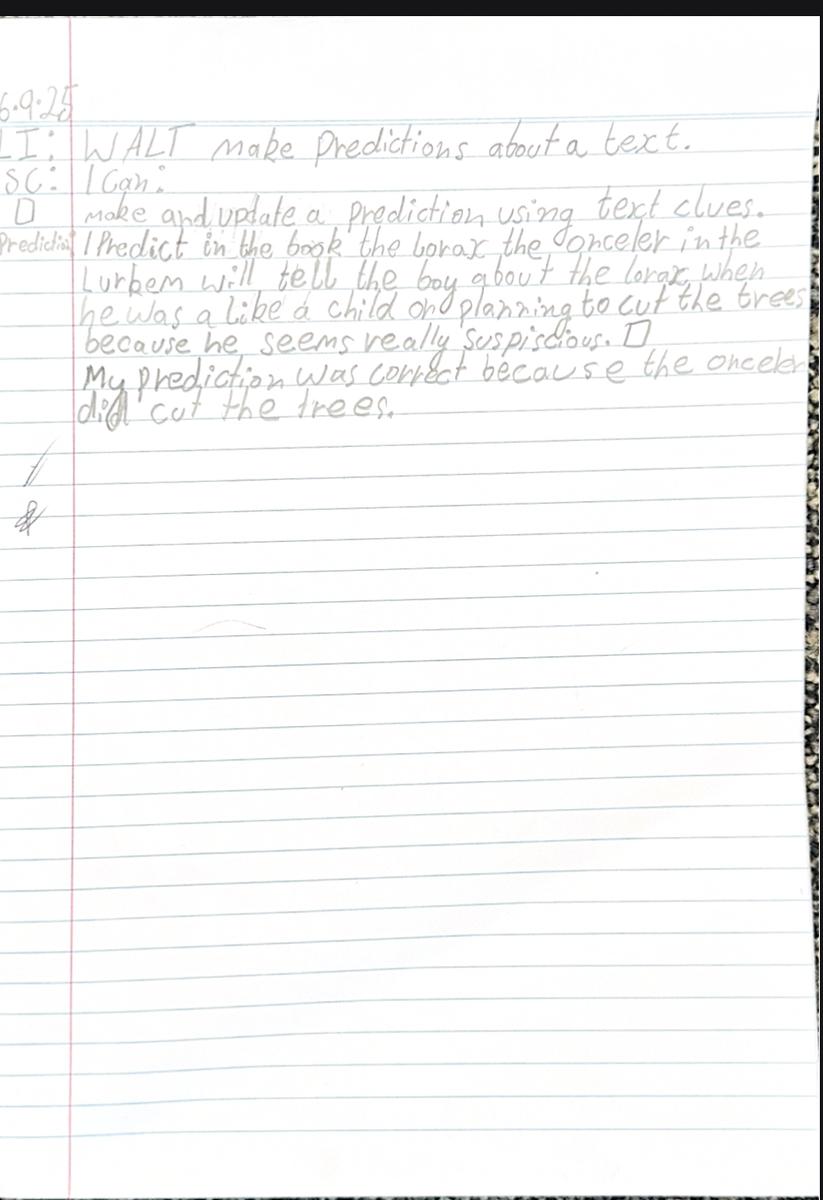 6.9.25
LI: WALT make predictions about a text.
SC: I Can:
make and update a prediction using text clues.
Prediction I Predict in the book the lorax the onceler in the
Lurkem will tell the boy about the lorax, when
he was a like a child and planning to cut the trees
because he seems really suspiscious.
My prediction was correct because the onceler
did cut the trees.